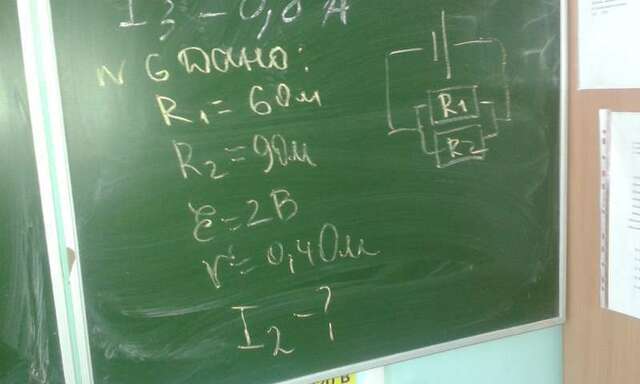 I₃ - 0,8 А
N 6 Дано:
R₁ = 6 Ом
R₂ = 9 Ом
ℰ = 2 В
r = 0,4 Ом
I₂ - ?
R1
R2